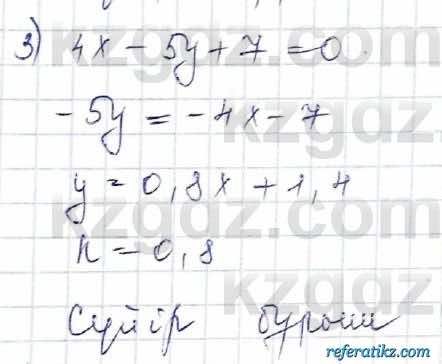 3) 4x - 5y + 7 = 0
-5y = -4x - 7
y = 0,8x + 1,4
k = 0,8
Сүйір бұрыш
kzgdz.com
referatikz.com